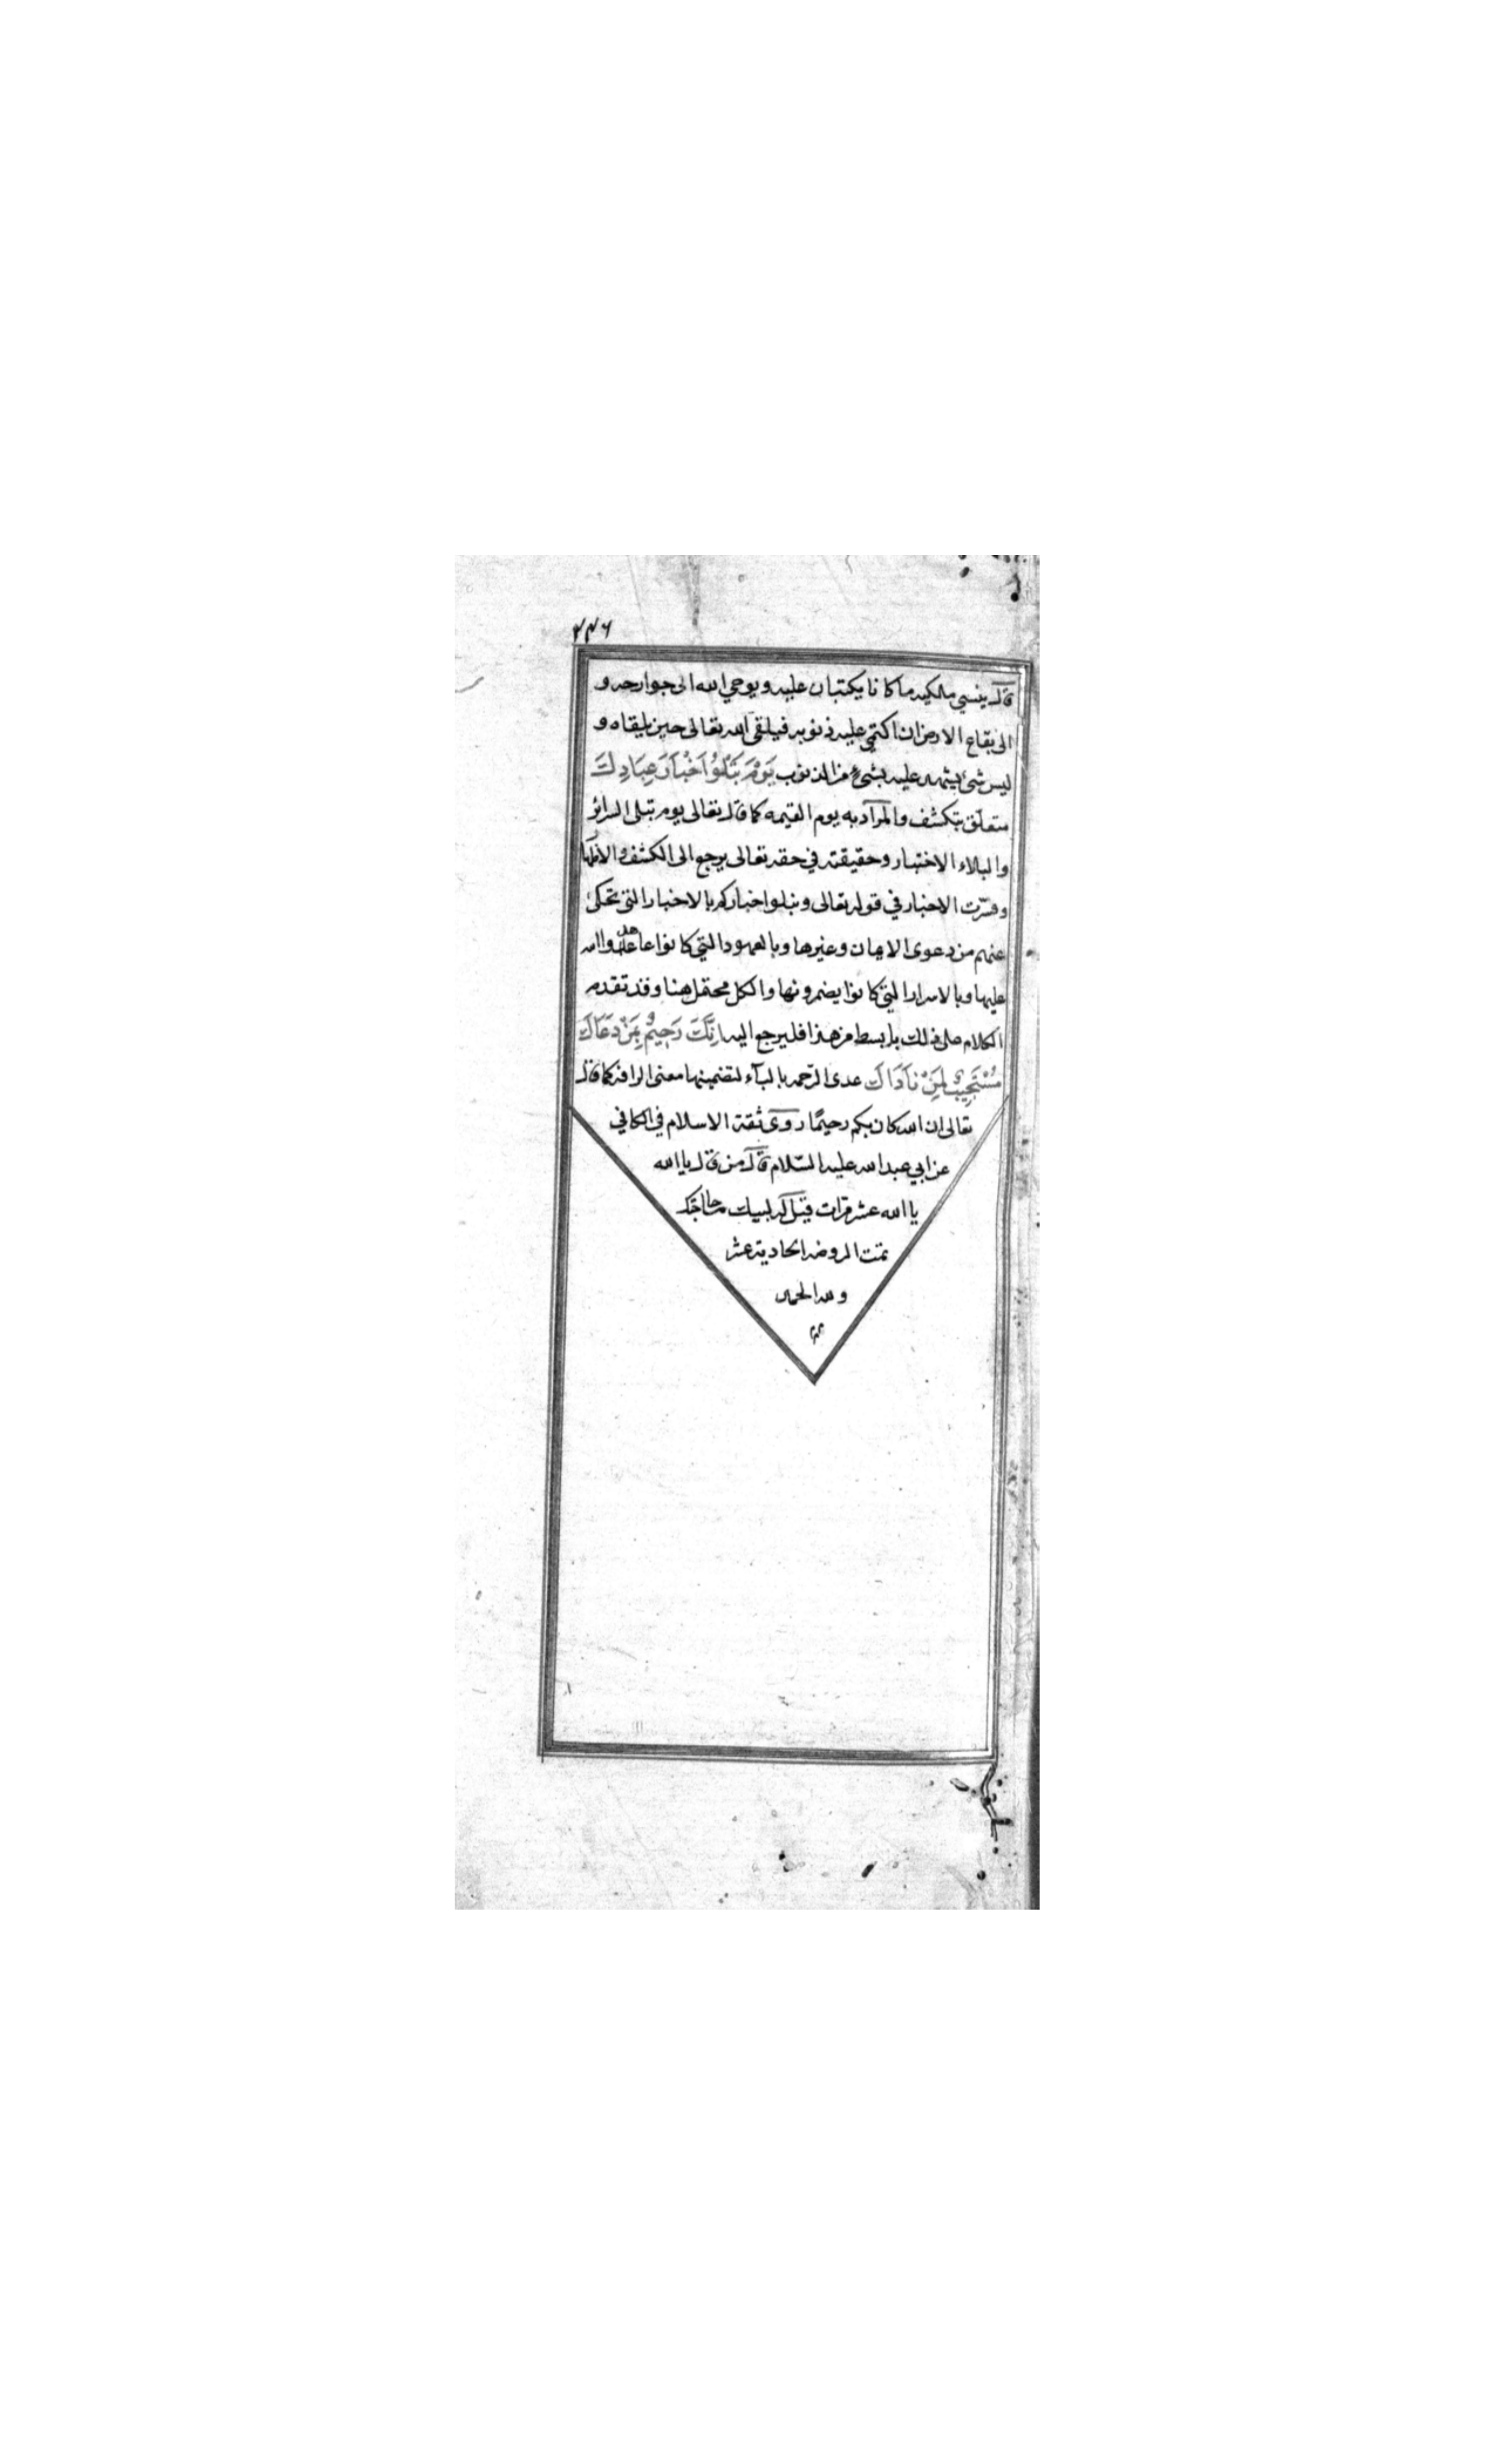 ٣٤٦
قال ينسي ملكيه ما كانا يكتبان عليه ويوحي الله الى جوارحه و
الى بقاع الارض ان اكتمي عليه ذنوبه فيلقى الله تعالى حين يلقاه و
ليس شئ يشهد عليه بشئ من الذنوب يَوْمَ تَبْلُوُا اَخْبَارَ عِبَادِكَ
متعلق بتكشف والمراد به يوم القيمه كما قال تعالى يوم تبلى السرائر
والبلاء الاختبار وحقيقته في حقه تعالى يرجع الى الكشف والاظها
وفسّرت الاخبار في قوله تعالى ونبلو اخباركم بالاخبار التي تحكى
عنهم من دعوى الايمان وغيرها وبالعهود التي كانوا عاهدوا الله
عليها وبالاسرار التي كانوا يضمرونها والكل محتمل هنا وقد تقدم
الكلام على ذلك بابسط من هذا فليرجع اليه اِنَّكَ رَحِيمٌ بِمَنْ دَعَاكَ
مُسْتَجِيبٌ لِمَنْ نَادَاكَ عدى الرّحمه بالبآء لتضمينها معنى الرافه كما قال
تعالى ان الله كان بكم رحيمًا روى ثقة الاسلام في الكافي
عن ابي عبد الله عليه السّلام قال من قال يا الله
يا الله عشر مرّات قيل له لبيك ما حاجتك
تمت الروضه الحادية عشر
ولله الحمد